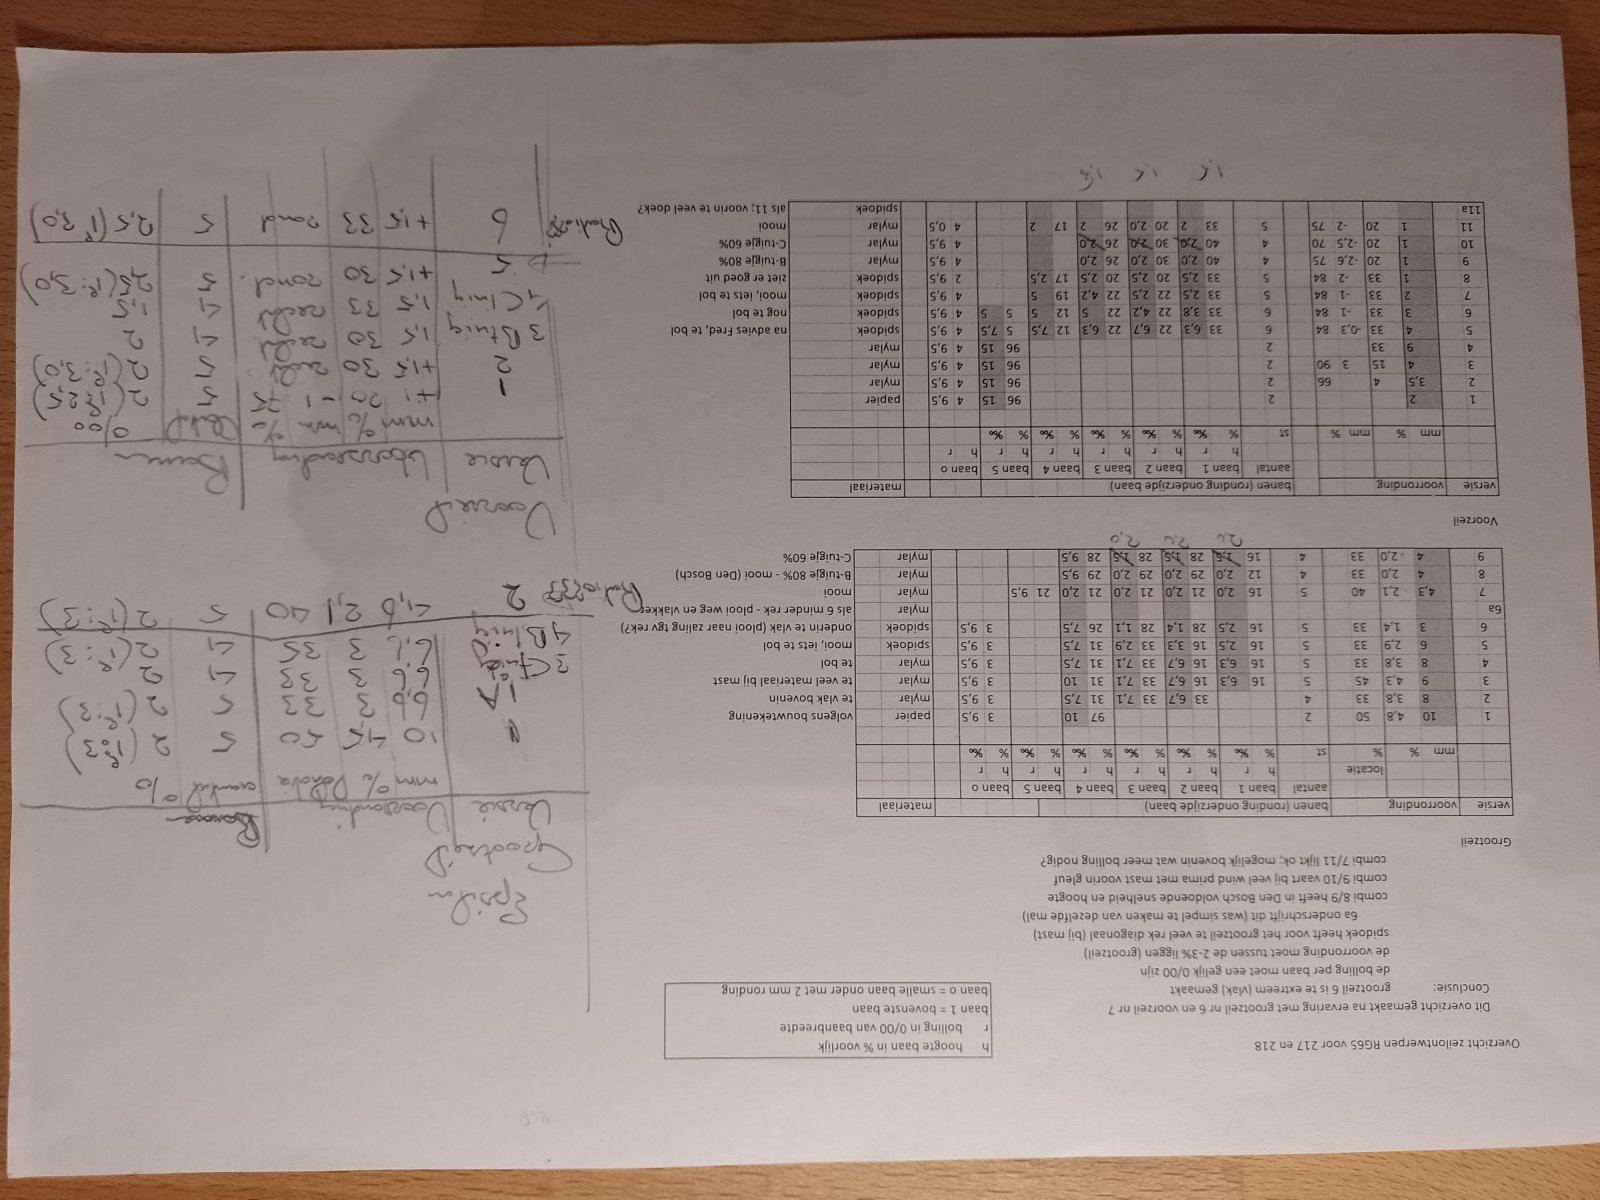 Overzicht zeilontwerpen RG65 voor 217 en 218
Dit overzicht gemaakt na ervaring met grootzeil nr 6 en voorzeil nr 7
Conclusie: grootzeil 6 is te extreem (vlak) gemaakt
de bolling per baan moet een gelijk 0/00 zijn
de voorronding moet tussen de 2-3% liggen (grootzeil)
spidoek heeft voor het grootzeil te veel rek diagonaal (bij mast)
6a onderschrijft dit (was simpel te maken van dezelfde mal)
combi 8/9 heeft in Den Bosch voldoende snelheid en hoogte
combi 9/10 vaart bij veel wind prima met mast voorin gleuf
combi 7/11 lijkt ok; mogelijk bovenin wat meer bolling nodig?
h hoogte baan in % voorlijk
r bolling in 0/00 van baanbreedte
baan 1 = bovenste baan
baan o = smalle baan onder met 2 mm ronding
Grootzeil
versie voorronding banen (ronding onderzijde baan) materiaal
aantal baan 1 baan 2 baan 3 baan 4 baan 5 baan o
locatie h r h r h r h r h r h r
mm % % st % ‰ % ‰ % ‰ % ‰ % ‰ % ‰
1 10 4,8 50 2 97 10 3 9,5 papier volgens bouwtekening
2 8 3,8 33 4 33 6,7 33 7,1 31 7,5 3 9,5 mylar te vlak bovenin
3 9 4,3 45 5 16 6,3 16 6,7 33 7,1 31 10 3 9,5 mylar te veel materiaal bij mast
4 8 3,8 33 5 16 6,3 16 6,7 33 7,1 31 7,5 3 9,5 mylar te bol
5 6 2,9 33 5 16 2,5 16 3,3 33 2,9 31 7,5 3 9,5 spidoek mooi, iets te bol
6 3 1,4 33 5 16 2,5 28 1,4 28 1,1 26 7,5 3 9,5 spidoek onderin te vlak (plooi naar zaling tgv rek?)
6a mylar als 6 minder rek - plooi weg en vlakker
7 4,3 2,1 40 5 16 2,0 21 2,0 21 2,0 21 2,0 21 9,5 mylar mooi
8 4 2,0 33 4 12 2,0 29 2,0 29 2,0 29 9,5 mylar B-tuigje 80% - mooi (Den Bosch)
9 4 2,0 33 4 16 1,5 28 1,5 28 1,5 28 9,5 mylar C-tuigje 60%
2,0 2,0 2,0
Voorzeil
versie voorronding banen (ronding onderzijde baan) materiaal
aantal baan 1 baan 2 baan 3 baan 4 baan 5 baan o
h r h r h r h r h r h r
mm % mm % st % ‰ % ‰ % ‰ % ‰ % ‰
1 2 2 96 15 4 9,5 papier
2 3,5 4 66 2 96 15 4 9,5 mylar
3 4 15 3 90 2 96 15 4 9,5 mylar
4 9 33 2 96 15 4 9,5 mylar
5 4 33 -0,3 84 6 33 6,3 22 6,7 22 6,3 12 7,5 5 7,5 4 9,5 spidoek na advies Fred, te bol
6 3 33 -1 84 6 33 3,8 22 4,2 22 5 12 5 5 5 4 9,5 spidoek nog te bol
7 2 33 -1 84 5 33 2,5 22 2,5 22 4,2 19 5 4 9,5 spidoek mooi, iets te bol
8 1 33 -2 84 5 33 2,5 20 2,5 20 2,5 17 2,5 2 9,5 spidoek ziet er goed uit
9 1 20 -2,6 75 4 40 2,0 30 2,0 26 2,0 4 9,5 mylar B-tuigje 80%
10 1 20 -2,5 70 4 40 2,0 30 2,0 26 2,0 4 9,5 mylar C-tuigje 60%
11 1 20 -2 75 5 33 2 20 2,0 26 2 17 2 4 0,5 mylar mooi
11a spidoek als 11; voorin te veel doek?
1,5 1,5 1,5
Epsilon
Grootzeil
Versie Voorronding Banen
mm % Positie aantal %
1 10 4,5 50 5 2 (1e:3)
1A 6,6 3 33 5 2 (1e:3)
3 Ctuig 6,6 3 33 4 2
4 Btuig 6,6 3 35 4 2 (1e:3)
2 4,6 2,1 40 5 2 (1e:3)
Voorzeil
Versie Voorronding Banen
mm % mm % aantal 0/00
1 +1 20 -1 75 5 2 (1e:2,5)
2 +1,5 30 recht 5 2 (1e:3,0)
3 Btuig 1,5 30 recht 4 2
4 Ctuig 1,5 33 recht 4 1,5
5 +1,5 30 rond. 5 2,5 (1e:3,0)
6 +1,5 33 rond 5 2,5 (1e:3,0)